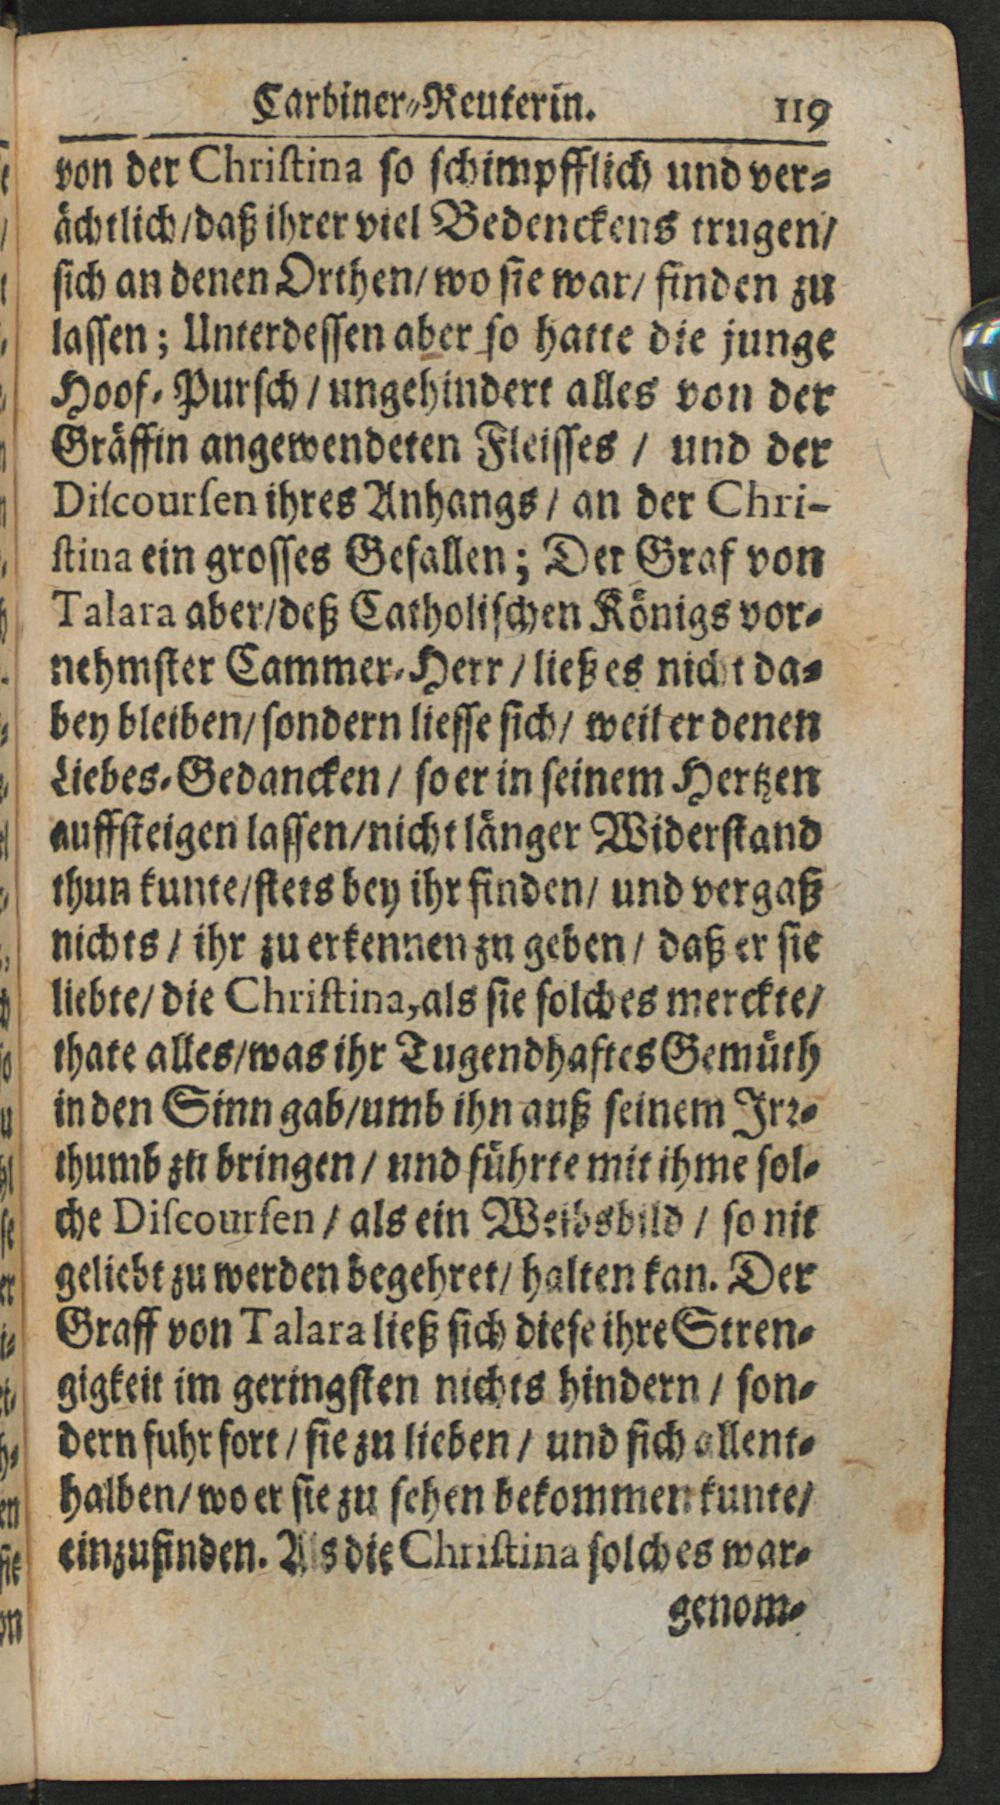 Carbiner-Reuterin. 119
von der Christina so schimpfflich und ver-
ächtlich/daß ihrer viel Bedenckens trugen/
sich an denen Orthen/wo sie war/ finden zu
lassen; Unterdessen aber so hatte die junge
Hoof-Pursch/ungehindert alles von der
Gräffin angewendeten Fleisses / und der
Discoursen ihres Anhangs/ an der Chri-
stina ein grosses Gefallen; Der Graf von
Talara aber/deß Catholischen Königs vor-
nehmster Cammer-Herr/ließ es nicht da-
bey bleiben/sondern liesse sich/ weil er denen
Liebes-Gedancken/ so er in seinem Hertzen
auffsteigen lassen/nicht länger Widerstand
thun kunte/stets bey ihr finden/ und vergaß
nichts / ihr zu erkennen zu geben/ daß er sie
liebte/die Christina, als sie solches merckte/
thate alles/was ihr Tugendhaftes Gemüth
in den Sinn gab/umb ihn auß seinem Irr-
thumb zu bringen/ und führte mit ihme sol-
che Discoursen/ als ein Weibsbild / so nit
geliebt zu werden begehret/halten kan. Der
Graff von Talara ließ sich diese ihre Stren-
gigkeit im geringsten nichts hindern / son-
dern fuhr fort/ sie zu lieben/ und sich allent-
halben/wo er sie zu sehen bekommen kunte/
einzufinden. Als die Christina solches war-
genom-